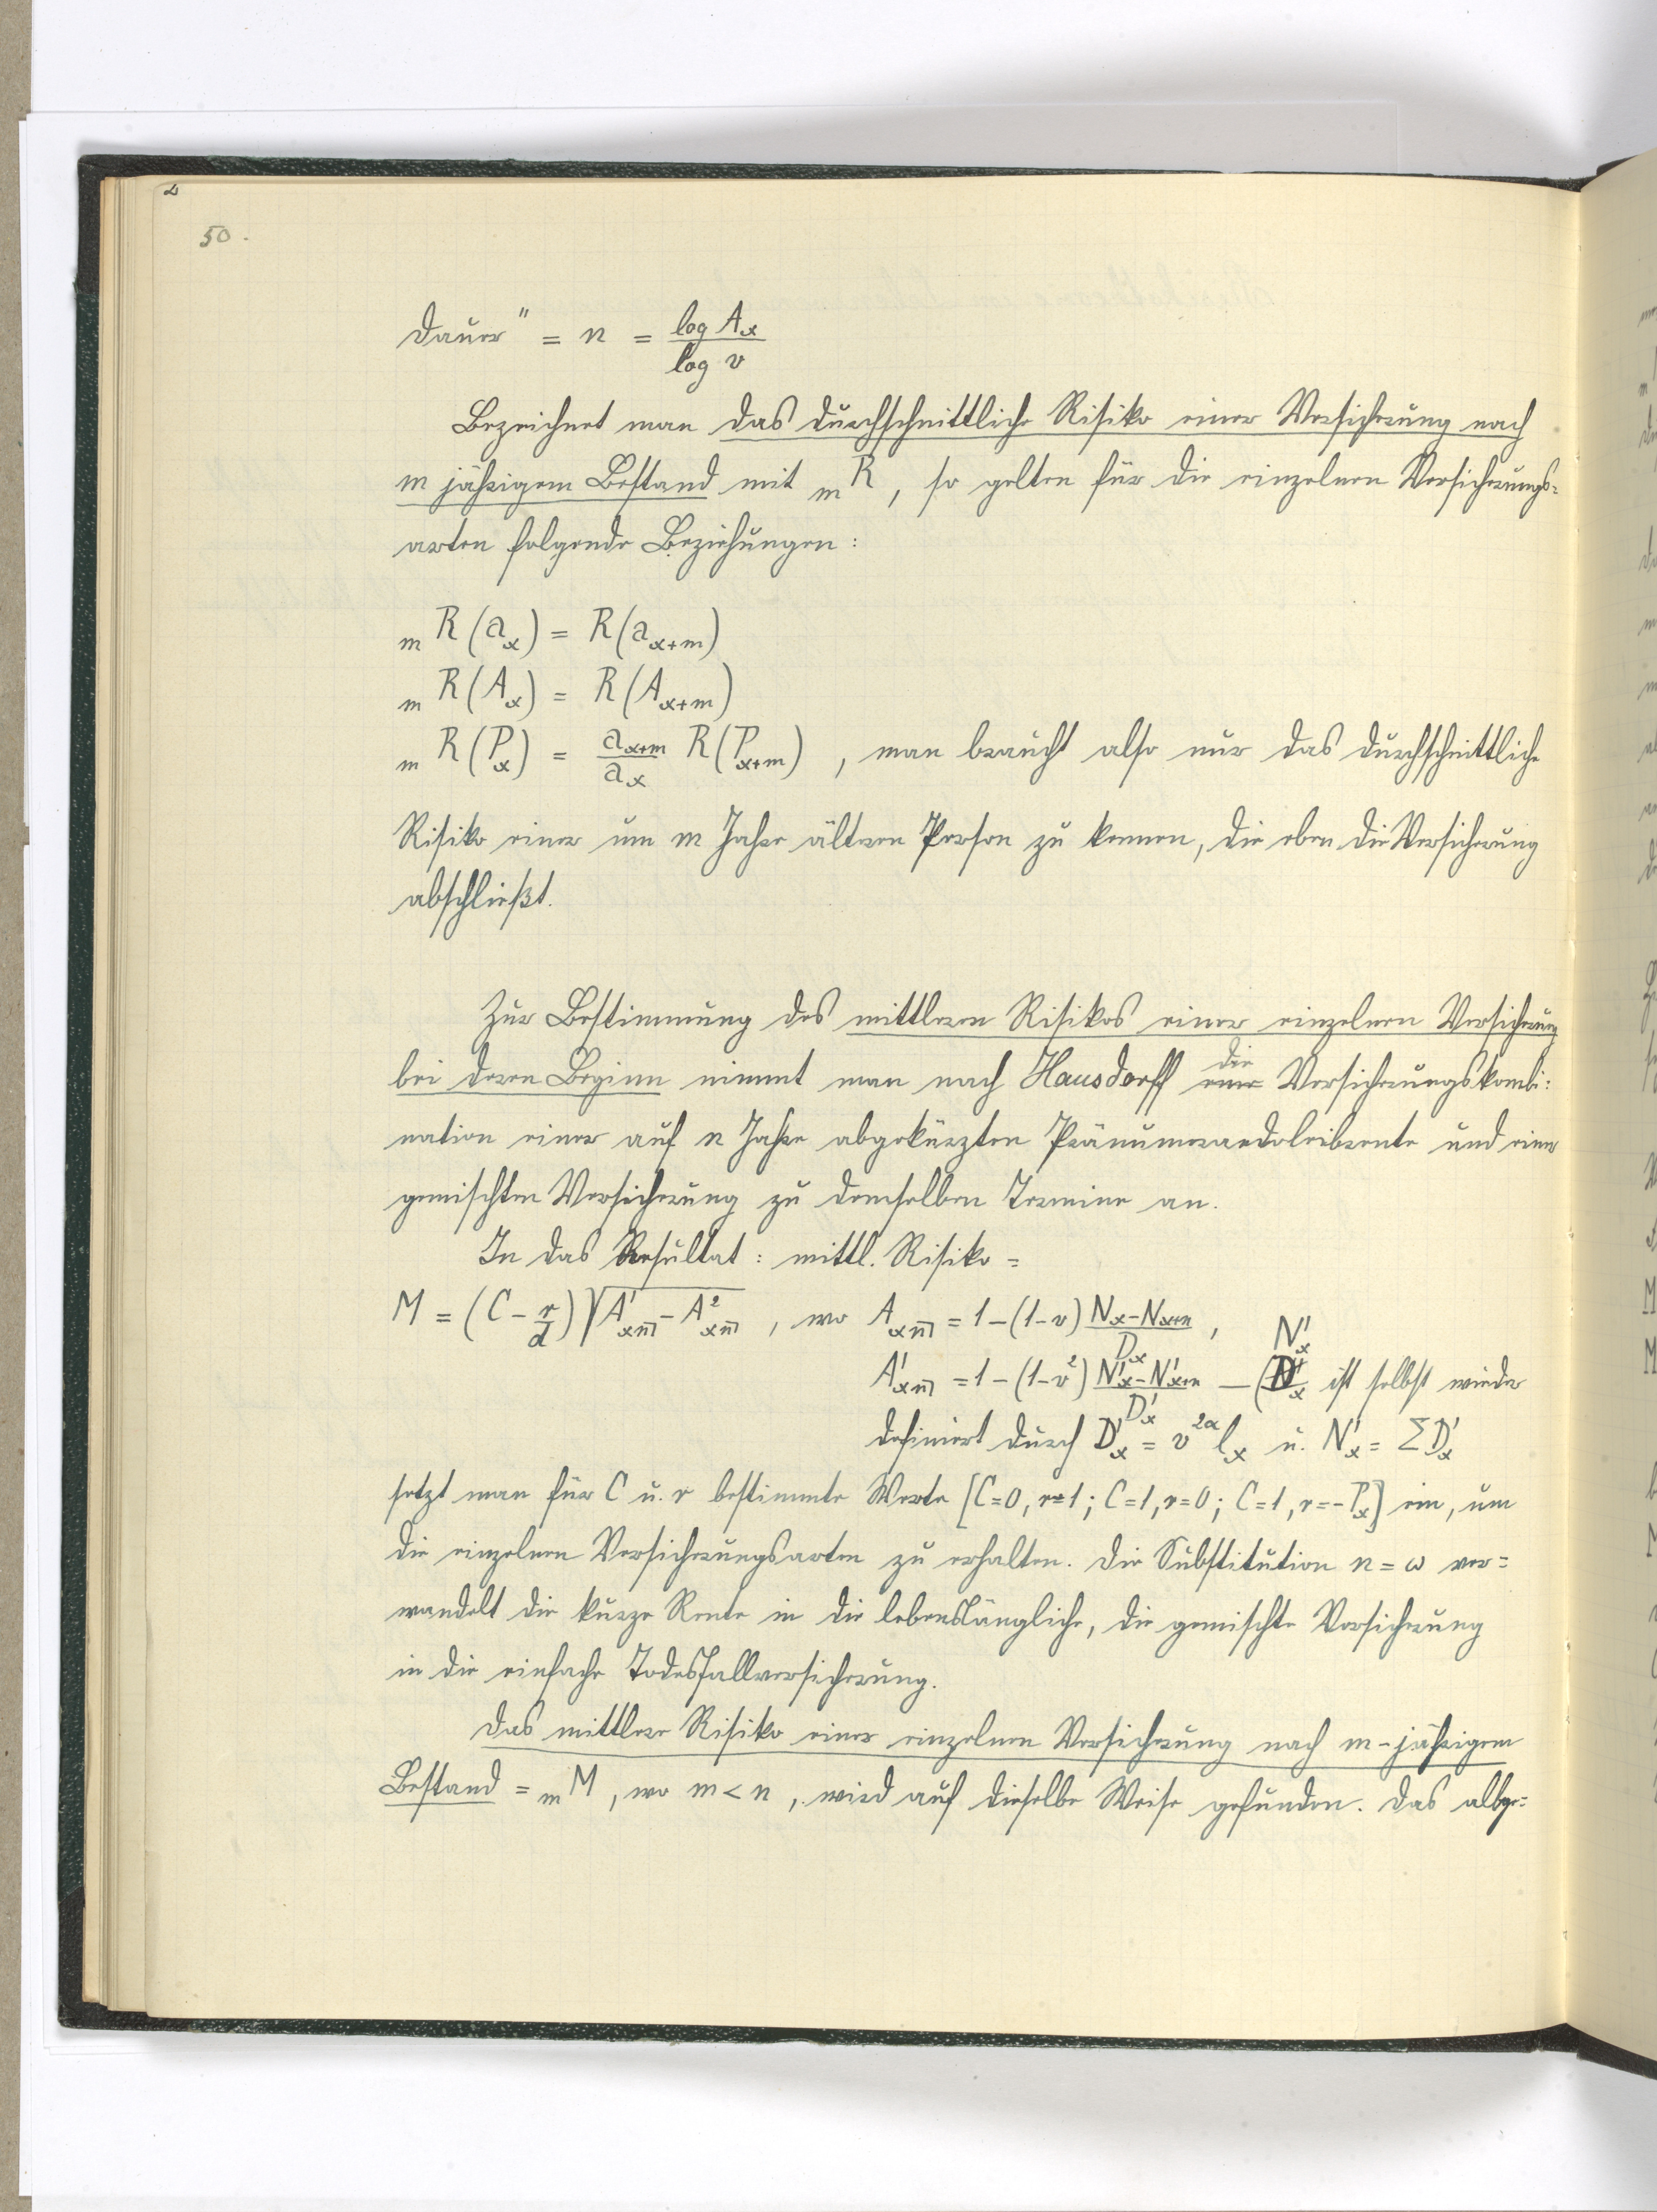 50.
Dauer" = n = log Ax / log v
Bezeichnet man das durchschnittliche Risiko einer Versicherung nach
m jährigem Bestand mit mR, so gelten für die einzelnen Versicherungs=
arten folgende Beziehungen:
mR(ax) = R(ax+m)
mR(Ax) = R(Ax+m)
mR(Px) = ax+m/ax R(Px+m), man braucht also nur das durchschnittliche
Risiko einer um m Jahre älteren Person zu kennen, die eben die Versicherung
abschließt.
Zur Bestimmung des mittleren Risikos einer einzelnen Versicherung
bei deren Beginn nimmt man nach Hausdorff die Versicherungskombi=
nation einer auf n Jahre abgekürzten Pränumerandoleibrente und einer
gemischten Versicherung zu demselben Termine an.
In das Resultat: mittl. Risiko =
M = (C - r/d) √(A'xn̅| - A²xn̅|), wo Axn̅| = 1-(1-v) (Nx-Nx+n)/Dx,
A'xn̅| = 1-(1-v²) (N'x-N'x+n)/D'x — (N'x/D'x ist selbst wieder
definiert durch D'x = v²ˣlx u. N'x = ΣD'x
setzt man für C u. r bestimmte Werte [C=0, r=1; C=1, r=0; C=1, r=-Px] ein, um
die einzelnen Versicherungsarten zu erhalten. Die Substitution n = ω ver=
wandelt die kurze Rente in die lebenslängliche, die gemischte Versicherung
in die einfache Todesfallversicherung.
Das mittlere Risiko einer einzelnen Versicherung nach m-jährigem
Bestand = mM, wo m < n, wird auf dieselbe Weise gefunden. Das abge=